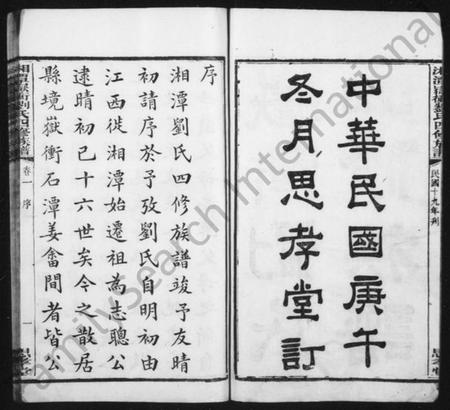 中華民國庚午
冬月思孝堂訂
民國十九年刊
序
湘潭劉氏四修族譜竣予友晴
初請序於予攷劉氏自明初由
江西徙湘潭始遷祖為志聰公
逮晴初已十六世矣今之散居
縣境嶽衡石潭姜畬間者皆公
劉氏四修族譜
卷一
序
一